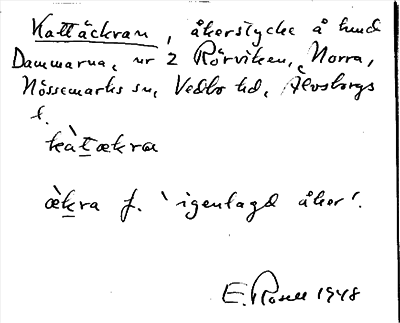 Kattäckran, åkerstycke å hmd
Dammarna, nr 2 Rörviken, Norra,
Nössemarks sn, Vedbo hd, Älvsborgs
l.
kàt̲ækra
æ̀k̲ra f. 'igenlagd åker'.
E. Rosell 1948